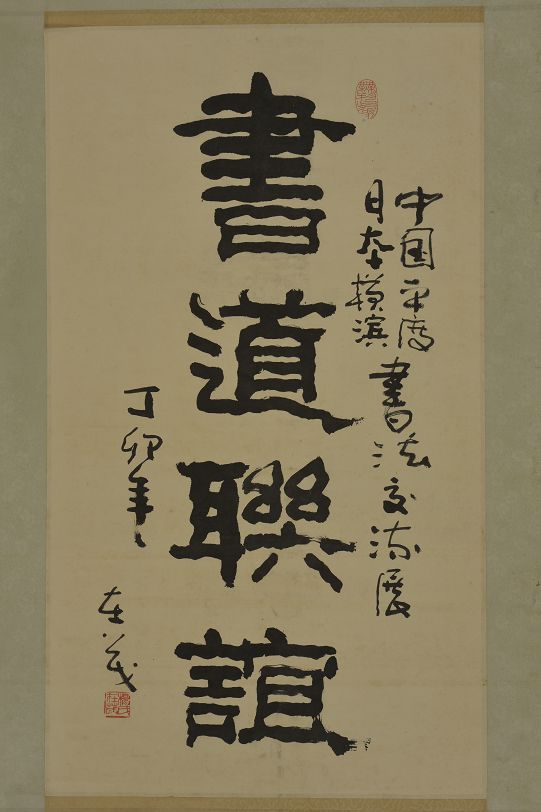 中国平度
日本横滨
書法交流展
書道聯誼
丁卯年
在義